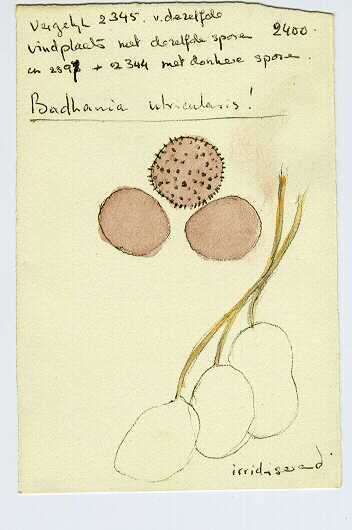 Vergelijk 2345. v. dezelfde
vindplaats met dezelfde sporen
2400.
en 2397 + 2344 met donkere sporen.
Badhamia utricularis!
irridiserend.